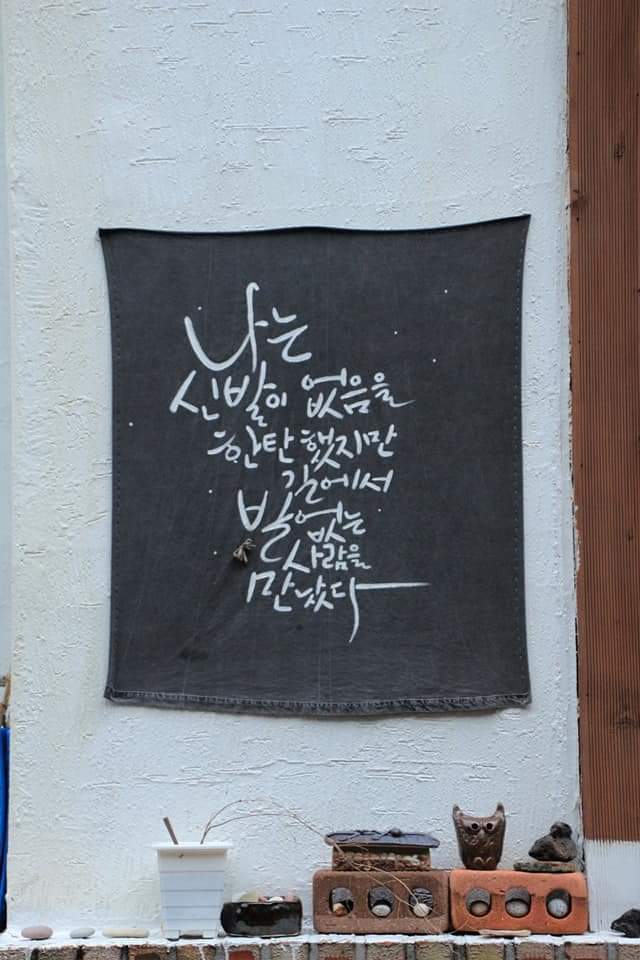 나는
신발이 없음을
한탄했지만
길에서
발 없는
사람을
만났다